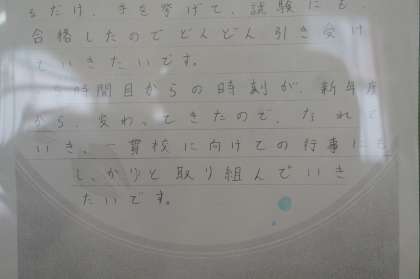 るだけ、手を挙げて、試験にも、
合格したのでどんどん引き受け
ていきたいです。
時間目からの時刻が、新年度
から、変わってきたので、なれて
いき、一貫校に向けての行事にも
しっかりと取り組んでいき
たいです。